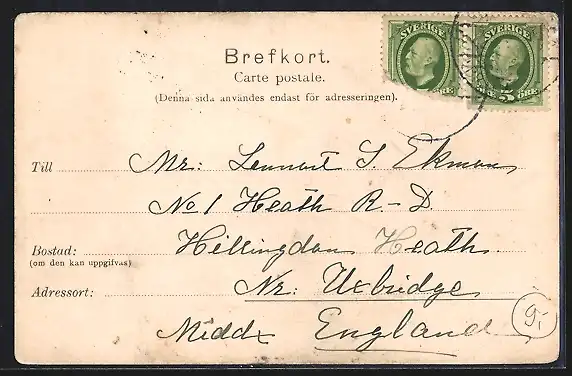 SVERIGE
SVERIGE
ÖRE
ÖRE 5 ÖRE
Brefkort.
Carte postale.
(Denna sida användes endast för adresseringen).
Till Mr: Lennart S. Ekman
No 1 Heath R-D
Bostad: Hillingdon Heath.
(om den kan uppgifvas)
Adressort: Nr: Uxbridge
Middx England
9,-